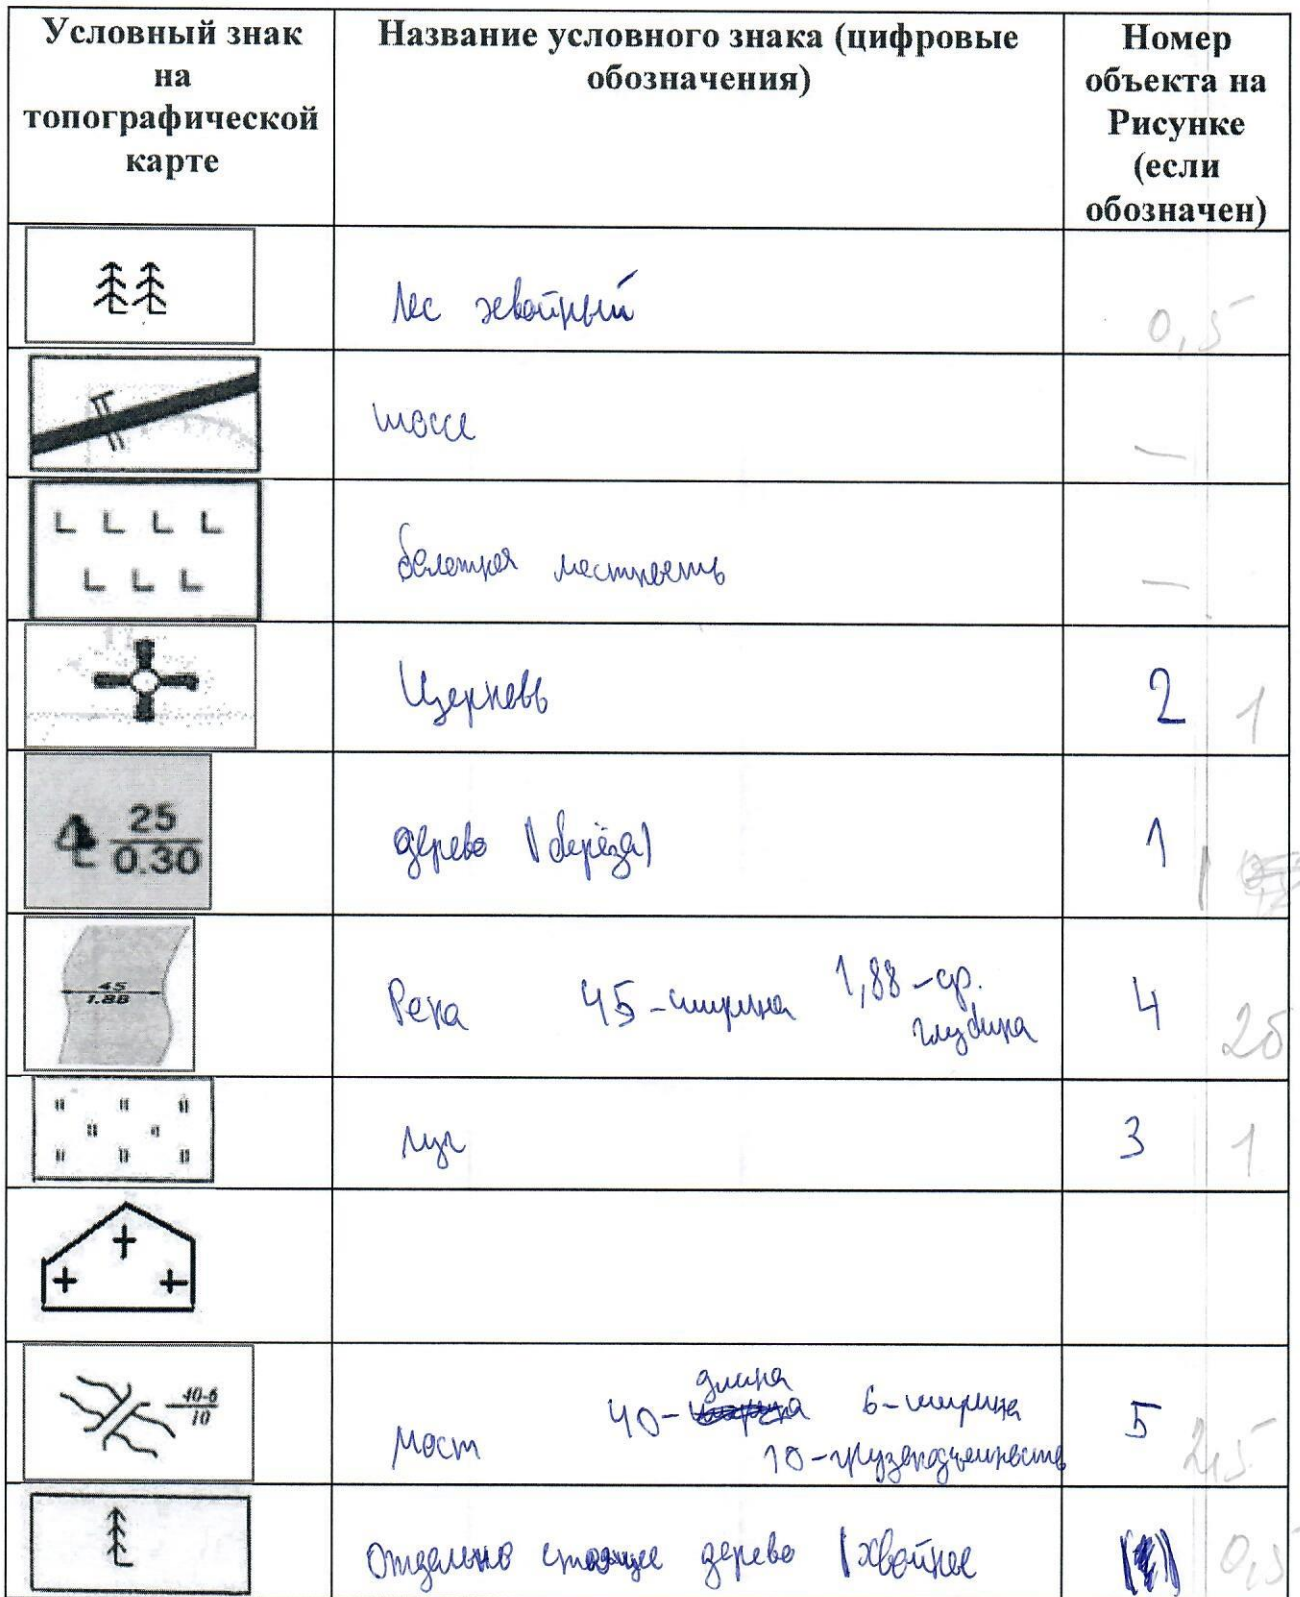 Условный знак
на
топографической
карте
Название условного знака (цифровые
обозначения)
Номер
объекта на
Рисунке
(если
обозначен)
Лес хвойный
0,5
шоссе
—
болотная местность
—
Церковь
2
1
25
0.30
дерево (берёза)
1
1
45
1.88
Река 45-ширина 1,88-ср.
глубина
4
2б
луг
3
1
40-6
10
длина
Мост 40- 6-ширина
10-грузоподъемность
5
2,5
Отдельно стоящее дерево (хвойное
0,5